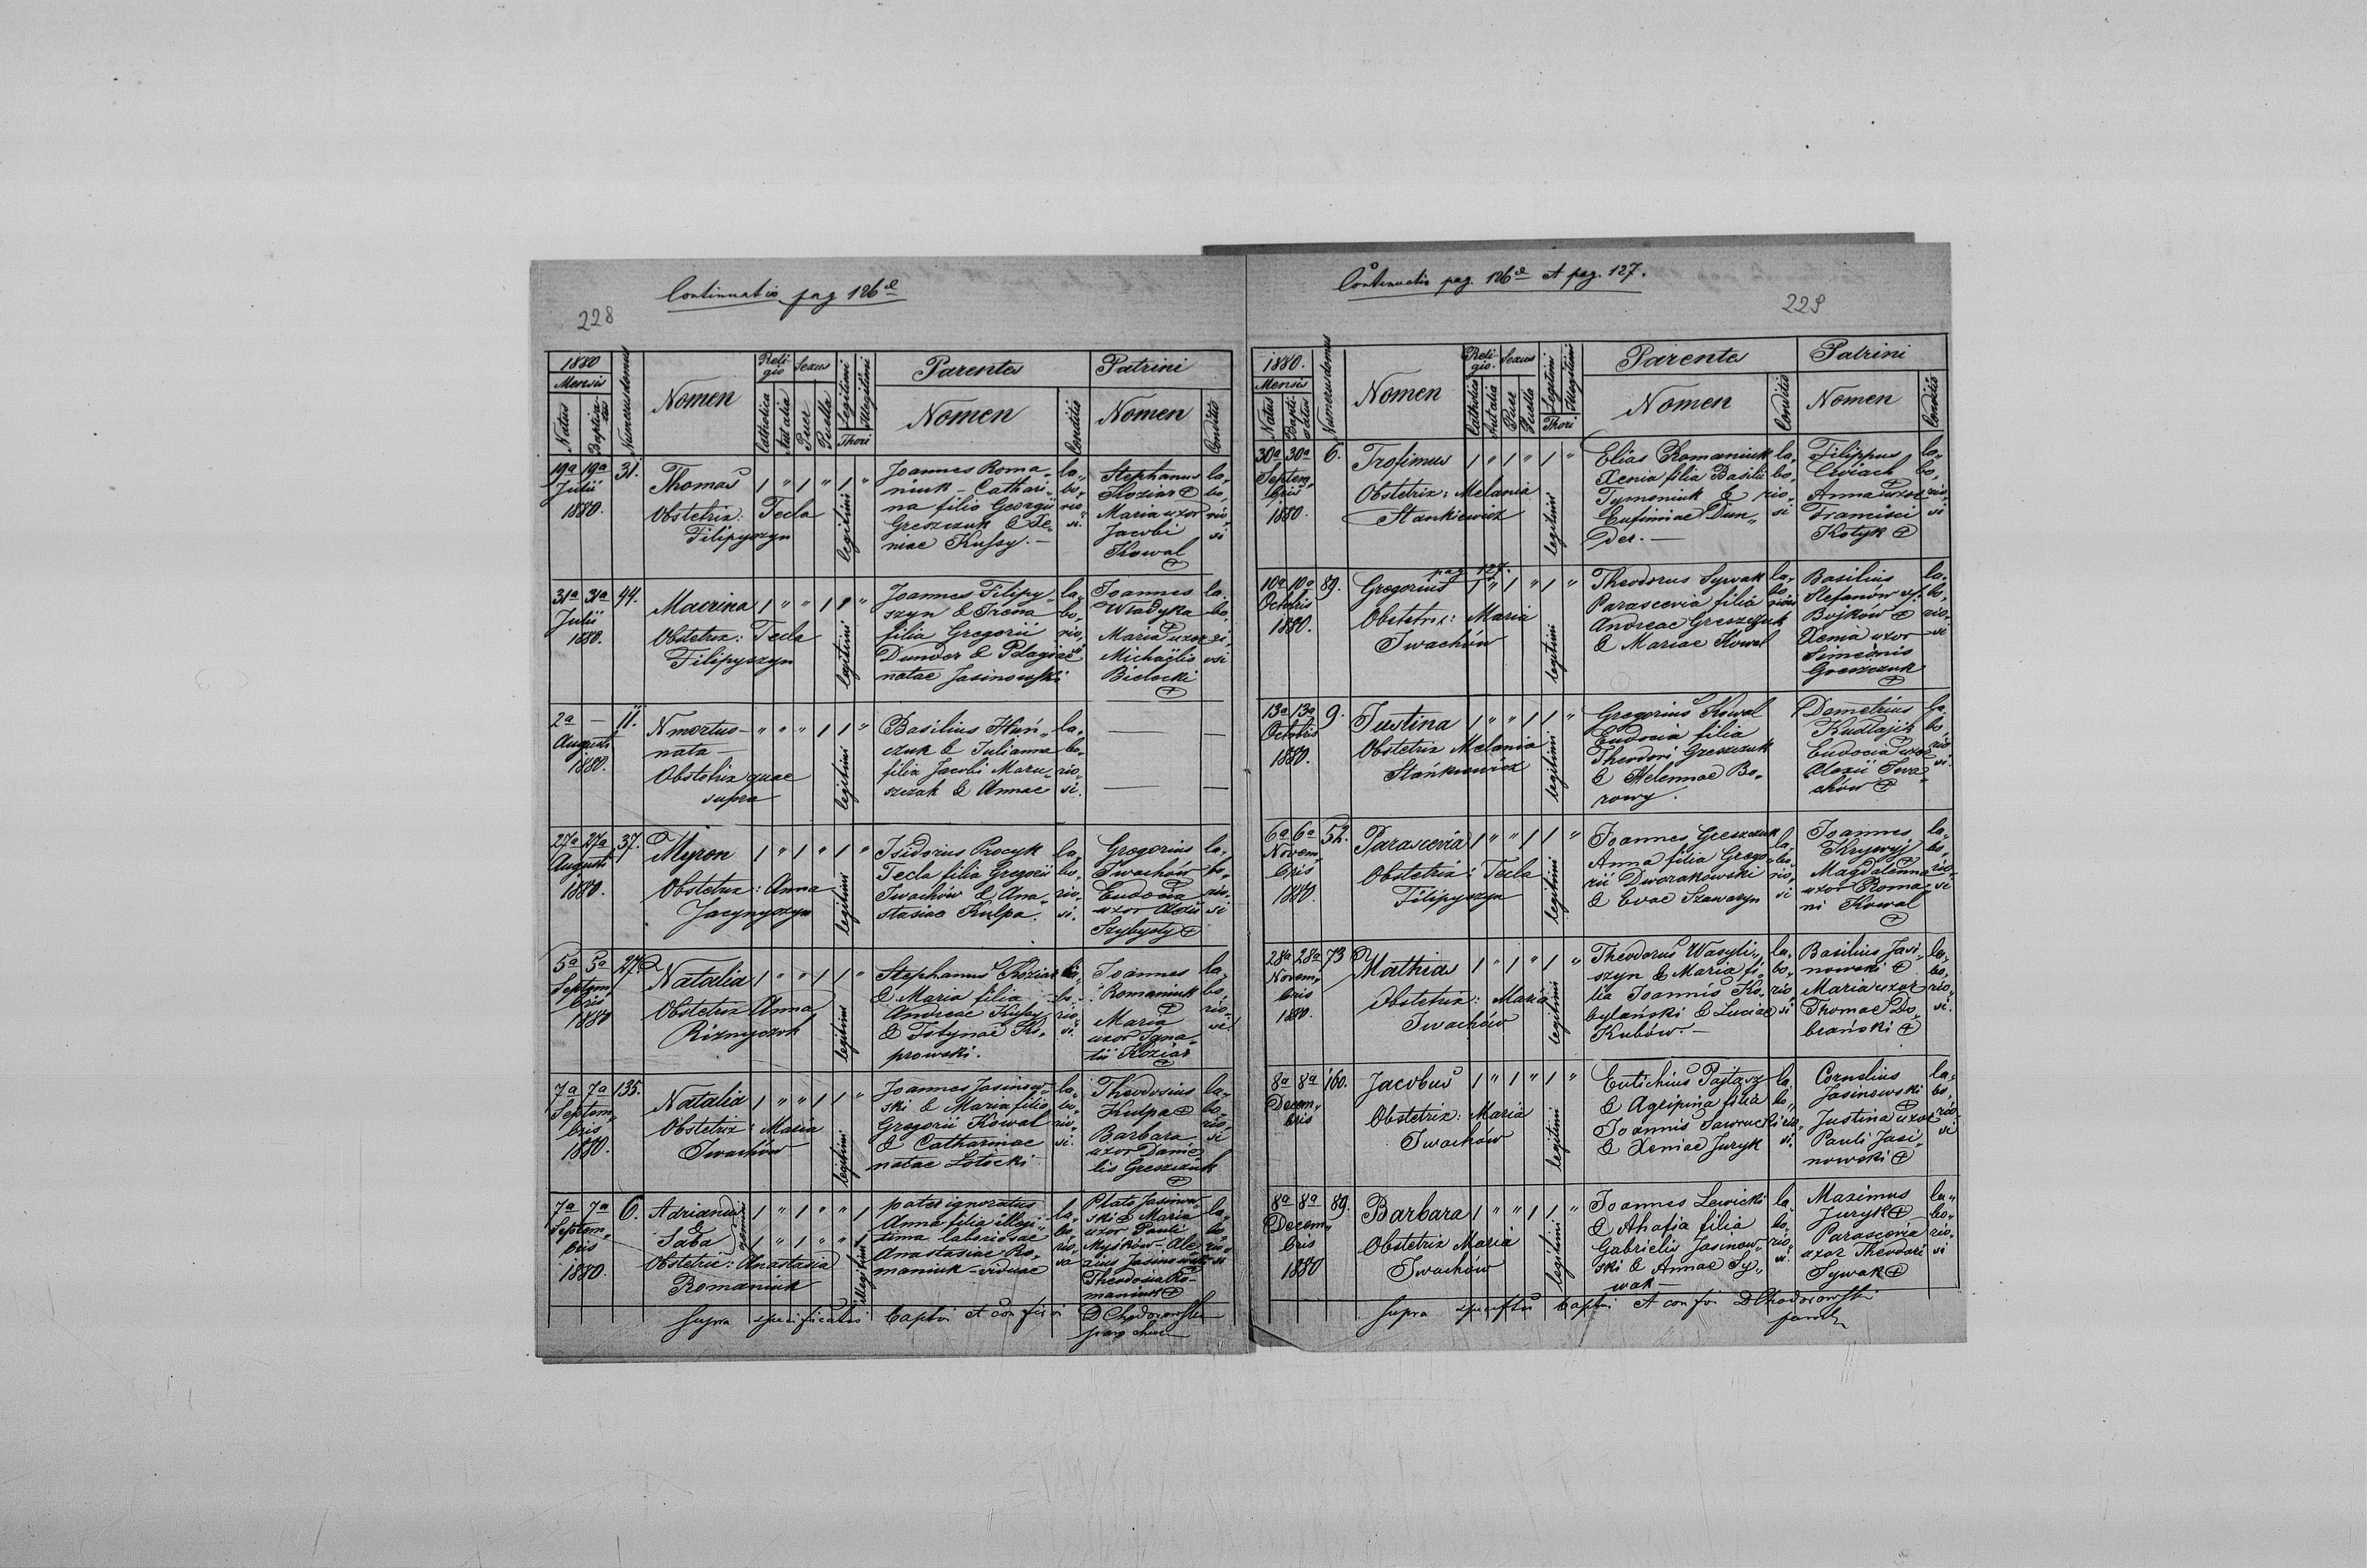 Continuatio pag 126
228
1880
Mensis
Natus
Baptisatus
Numerus domus
Nomen
Religio
Catholica
Aut alia
Sexus
Puer
Puella
Legitimi
Illegitimi
Thori
Parentes
Nomen
Conditio
Patrini
Nomen
Conditio
19a 19a 31.
Julii
1880.
Thomas 1 " 1 " 1 "
Obstetrix: Tecla
Filipyszyn
legitimi
Joannes Roma„
niuk - Cathari„
na filia Georgii
Greszczuk & Xe„
niae Kussy. —
la„
bo„
rio„
si.
Stephanus
Koziar
Maria uxor
Jacobi
Kowal
la„
bo„
rio„
si
31a 31a 44.
Julii
1880.
Macrina 1 " " 1 1 "
Obstetrix: Tecla
Filipyszyn
legitimi
Joannes Filipy„
szyn & Irena
filia Gregorii
Dunder & Pelagiae
natae Jasinowski
la„
bo„
rio„
Joannes
Władyka
Maria uxor
Michaëlis
Bielecki
la„
bo„
ri„
osi
2a — 11.
Augusti
1880.
N mortuo—
nata—
Obstetrix quae
supra
" " " 1 1 "
legitimi
Basilius Huń„
czuk & Julianna
filia Jacobi Maru„
szczak & Annae
la„
bo„
rio„
si.
27a 27a 37.
Augusti
1880.
Myron 1 " 1 " 1 "
Obstetrix: Anna
Jacynyszyn
legitimi
Isidorius Procyk
Tecla filia Gregorii
Iwachów & Ana„
stasiae Kulpa.
la„
bo„
rio„
si.
Gregorius
Iwachów
Eudocia
uxor Alexii
Szybysty
la„
bo„
rio„
si
5a 5a 27.
Septem„
bris
1880
Natalia 1 " " 1 1 "
Obstetrix Anna
Riznyczok
legitimi
Stephanus Koziar
& Maria filia
Andreae Kussy
& Fotynae Ko„
prowski.
la„
bo„
rio„
si.
Joannes
Romaniuk
Maria
uxor Igna„
tii Koziar
la„
bo„
rio„
si
7a 7a 135.
Septem„
bris
1880.
Natalia 1 " " 1 1 "
Obstetrix: Maria
Iwachów
legitimi
Joannes Jasinow„
ski & Maria filia
Gregorii Kowal
& Catharinae
natae Łotocki
la„
bo„
rio„
si.
Theodosius
Kulpa
Barbara
uxor Danie„
lis Greszczuk
la„
bo„
rio„
si
7a 7a 6.
Septem„
bris
1880.
Adrianus 1 " 1 " " 1
&
Saba 1 " 1 " " 1
gemini
Obstetrix: Anastasia
Romaniuk
illegitimi
pater ignoratus
Anna filia illegi„
tima laboriosae
Anastasiae Ro„
maniuk - viduae
la„
bo„
rio„
sa
Plato Jasinow„
ski & Maria
uxor Pauli
Myśków — Ale„
xius Jasinowski
Theodosia Ro„
maniuk
la„
bo„
rio„
si
Supra specificatos baptisi et confir D Chodorowski
paroch
Continuatio pag. 126 et pag. 127.
229
1880.
Mensis
Natus
Baptisatus
Numerus domus
Nomen
Religio.
Catholica
Aut alia
Sexus
Puer
Puella
Legitimi
Illegitimi
Thori
Parentes
Nomen
Conditio
Patrini
Nomen
Conditio
30a 30a 6.
Septem„
bris
1880.
Trofimus 1 " 1 " 1 "
Obstetrix: Melania
Stankiewicz
legitimi
Elias Romaniuk
Xenia filia Basilii
Tymoniuk &
Eufimiae Dun„
der. —
la„
bo„
rio„
si
Filippus
Cwiach
Anna uxor
Francisci
Kotyk
la„
bo„
rio„
si
pag 127.
10a 10a 89.
Octobris
1880.
Gregorius 1 " 1 " 1 "
Obstetrix: Maria
Iwachów
legitimi
Theodorus Sywak
Parascevia filia
Andreae Greszczuk
& Mariae Kowal
la„
bo„
riosi
Basilius
Stefanów
Bojków
Xenia uxor
Simeonis
Greszczuk
la„
bo„
rio„
si
13a 13a 9.
Octobris
1880.
Justina 1 " " 1 1 "
Obstetrix Melania
Stańkiewicz
legitimi
Gregorius Kowal
Eudocia filia
Theodori Greszczuk
& Helennae Bo„
rowy.
Demetrius
Kudłajik
Eudocia uxor
Alexii Iwa„
chów
la„
bo„
rio„
si.
6a 6a 52.
Novem„
bris
1880.
Parascevia 1 " " 1 1 "
Obstetrix: Tecla
Filipyszyn
legitimi
Joannes Greszczuk
Anna filia Grego„
rii Dworakowski
& Evae Szawaryn
la„
bo„
rio„
si
Joannes
Krywyj
Magdalenna
uxor Roma„
ni Kowal
la„
bo„
rio„
si
28a 28a 73
Novem„
bris
1880.
Mathias 1 " 1 " 1 "
Obstetrix: Maria
Iwachów
legitimi
Theodorus Wasyli„
szyn & Maria fi„
lia Joannis Ko„
bylański & Luciae
Kubów. —
la„
bo„
rio„
si
Basilius Jasi„
nowski
Maria uxor
Thomae Do„
brański
la„
bo„
rio„
si.
8a 8a 160.
Decem„
bris
Jacobus 1 " 1 " 1 "
Obstetrix: Maria
Iwachów
legitimi
Eutichius Pajtasz
& Agripina filia
Joannis Sawruk
& Xeniae Juryk
la„
bo„
rio„
si.
Cornelius
Jasinowski
Justina uxor
Pauli Jasi„
nowski
la„
bo„
rio„
si
8a 8a 89.
Decem„
bris
1880
Barbara 1 " " 1 1 "
Obstetrix Maria
Iwachów
legitimi
Joannes Lewicki
& Ahafia filia
Gabrielis Jasinow„
ski & Annae Sy„
wak —
la„
bo„
rio„
si
Maximus
Juryk
Parascevia
uxor Theodori
Sywak
la„
bo„
rio„
si
Supra baptisi et confir D Chodorowski